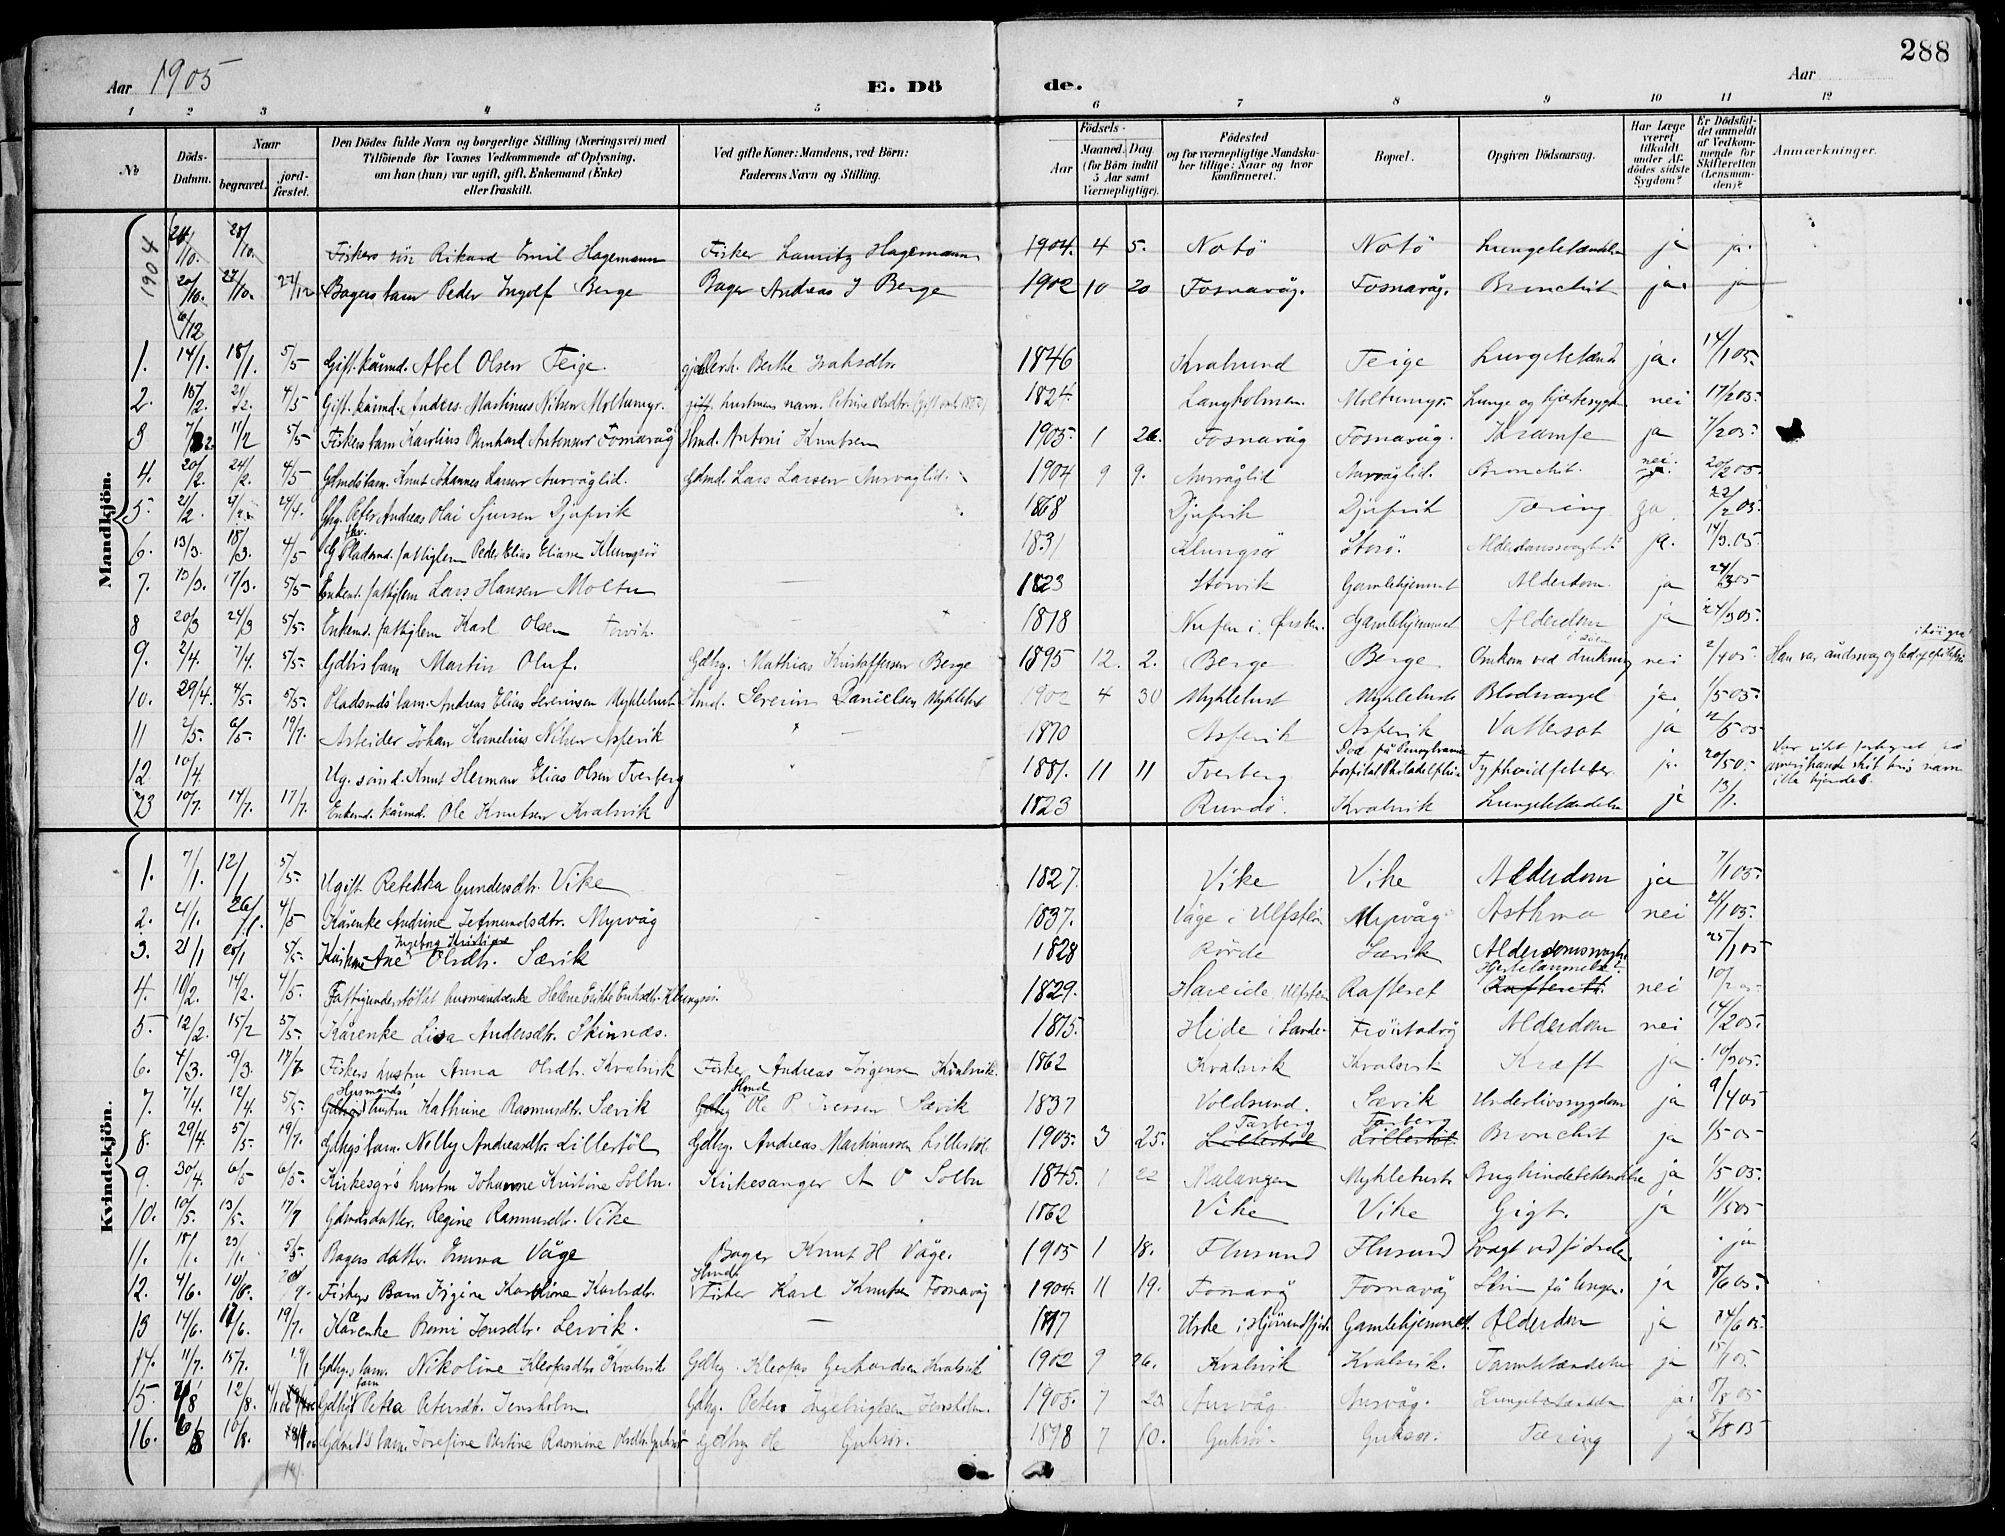 288
Aar 1905 E. Dö de. Aar
1 2 3 4 5 6 7 8 9 10 11 12
No Döds-Datum. Naar begravet. jordfæstet. Den Dödes fulde Navn og borgerlige Stilling (Næringsvei) med Tilföiende for Voxnes Vedkommende af Oplysning, om han (hun) var ugift, gift, Enkemand (Enke) eller fraskilt. Ved gifte Koner: Mandens, ved Börn: Faderens Navn og Stilling. Födsels- Aar Maaned. Dag (for Börn indtil 5 Aar samt Værnepligtige). Födested og for værnepligtige Mandskaber tillige: Naar og hvor konfirmeret. Bopæl. Opgiven Dödsaarsag. Har Læge været tilkaldt under Afdödes sidste Sygdom? Er Dödsfaldet anmeldt af Vedkommende for Skifteretten (Lensmanden)? Anmærkninger.
Mandkjön.
1904 24/10. 28/10. Fiskers sön Rikard Emil Hagemann Fisker Lauritz Hagemann 1904. 4 5. Notö Notö Lungebetændelse ja ja.
20/10. 27/10. 27/12 Bagers barn Peder Ingolf Berge Bager Andreas J Berge 1902 10 20 Fosnavåg. Fosnavåg. Bronchit ja. ja
6/12
1. 14/1. 18/1. 5/5 Gift. kårmd. Abel Olsen Teige. Berthe Isaksdtr. 1846 Kvalsund Teige Lungebetænd. ja. 14/1 05.
2. 15/2. 21/2. 4/5 Gift. kårmd. Anders Martinus Nilsen Moltumyr. gift. hustruens navn. Petrine Olsdtr. 1824. Langholmen. Moltumyr. Lunge og hjertesygd. nei 17/2 05.
3 7/2. 11/2 5/5 Fiskers barn Karolius Bernhard Antonsen Fosnavåg Hmd. Antoni Knutsen 1905. 1 26. Fosnavåg Fosnavåg. Krampe ja 7/2 05.
4. 20/2. 24/2. 4/5 Gdmds barn. Knut Johannes Larsen Aurvåglid. Gdmd. Lars Larsen Aurvaglid. 1904 9 9. Aurvåglid Aurvåglid. Bronchit. nei. 20/2 05.
5. 21/2. 24/4. Gbg. Peter Andreas Olai Sjursen Djupvik 1868 Djupvik Djupvik Tæring ja. 22/2 05.
6. 13/3. 18/3. 4/5 Pladsmd. fattiglem Peder Elias Eliasen Klungsör 1831 Klungsör Storö. Alderdomssvaghed ja. 14/3. 05.
7. 13/3. 17/3. 5/5 Enkemd. fattiglem Lars Hansen Moltu — 1823 Storvik Gamlehjemmet Alderdom ja 24/3 05
8 20/3 24/3 5/5. Enkemd. fattiglem Karl Olsen Torvik. 1818 i Örsten. Gamlehjemmet Alderdom ja 24/3 05.
9. 2/4. 7/4. 5/5. Gdbgs barn Martin Oluf. Gdbg. Mathias Kristoffersen Berge 1895 12. 2. Berge Berge Omkom ved drukning i söen nei 2/4 05. Han var åndssvag og led af epilepsi i höi grad
10. 29/4. 4/5. 5/5. Pladsmds barn. Andreas Elias Severinsen Myklebust Hmd. Severin Danielsen Myklebust 1902 4 30 Myklebust Myklebust Blodmangel ja. 1/5 05.
11 2/5. 6/5. 19/7. Arbeider Johan Kornelius Nilsen Aspevik " — 1870 Aspevik Aspevik Vattersot ja 12/5 05
12 10/4 Ug. sömd. Knut Herman Elias Olsen Tverberg " 1881. 11 11 Tverberg Död på Pensylvania hospital Philadelphia Typhoidfeber ja. 20/5 0. Var uden forhyret på amerikansk skib hvis navn ikke kjendes.
13 10/7. 14/7. 17/7. Enkemd. kårmd. Ole Knutsen Kvalsvik 1823 Rundö. Kvalsvik Lungebetændelse ja 13/7.
Kvindekjön.
1. 7/1. 12/1 5/5. Ugift Rebekka Gundersdtr. Vike 1827. Vike Vike Alderdom ja 7/1 05.
2. 21/1. 26/1. 4/5 Kårenke Andrine Jetmundsdtr. Myrvåg 1837. Våge i Ulfsten Myrvåg Asthma nei 21/1 05.
3. 21/1 28/1 5/5. Ane Ingeborg Kristiane Olsdtr. Sævik 1828 Rörde Sævik Alderdomssvaghed 25/1 05
4. 10/2. 14/2. 4/5. Fattigunderstöttet husmandsenke Helene Eriksdtr. Klungsör. 1829. Hareide Ulfsten Rafteset Hjertelammelse Rafteset. nei 10/2 05.
5. 12/2. 15/2 5/5. Kårenke Lisa Andersdtr. Skinnes. 1815. Heide i Sande Fröistadvåg Alderdom nei 14/2 05.
6. 4/3. 9/3. 17/7. Fiskers hustru Anna Olsdtr. Kvalsvik Fisker Andreas Jörgensen Kvalsvik. 1862 Kvalsvik Kvalsvik Kræft ja 10/3 05.
7. 7/4. 12/4. 5/5. Husmands Gdbgs hustru Kathrine Rasmusdtr. Sævik Hmd Gdbg Ole P. Iversen Sævik 1837 Voldsund. Sævik Underlivssygdom ja 9/4 05
8. 29/4. 5/5. 19/7. Gdbgs barn. Nelly Andreasdtr. Lillestöl Gdbg. Andreas Martinussen Lillestöl. 1905. 3 25. Tarberg Lillestöl Tarberg Lillestöl. Bronchit ja 1/5 05
9. 30/4. 6/5 6/5. Kirkesgrs hustru Johanne Kristine Solbu. Kirkesanger A O Solbu 1845. 1 22 Malangen Myklebust Bughindebetændelse ja 1/5 05.
10. 10/5. 13/5. 17/7 Gdmdsdatter. Regine Rasmusdtr. Vike 1862 Vike Vike Gigt. ja 11/5 05
11. 18/1. 23/1. 5/5. Bagers datter. Emma Våge Bager Knut H Våge. 1905 1 18. Flusund Flusund Svagt ved födselen. ja
12. 4/6. 10/6. Fiskers Barn Jörgine Karoline Karlsdtr. Hmd Fisker Karl Knutsen Fosnavåg 1904. 11 19. Fosnavåg Fosnavåg Slim på lungen. ja 8/6 05.
13 14/6. 17/6. 19/7. Kårenke Jensdtr. Lervik. — 1817 Urke i Hjörundfjord Gamlehjemmet. Alderdom ja 24/6 05.
14. 11/7. 15/7. 19/1 Gdbgs barn. Nikoline Kleofasdtr. Kvalsvik Gdbg. Kleofas Gerhardsen Kvalsvik 1902 9 26. Kvalsvik Kvalsvik. Tarmbetændelse ja 15/7 05.
15. 7/8 12/8. Gdbgs barn Petra Petersdtr. Jensholm. Gdbg. Peter Ingebrigtsen Jensholm. 1905. 7 23. Aurvåg Aurvåg. Lungebetændelse ja. 8/8 05
16. 6/8 10/8. Gdmds barn. Josefine Bertine Rasmine Olsdtr. Gurksör Gdbg Ole Gurksör. 1898 7 10. Gurksör. Gurksör. Tæring ja 8/8 05